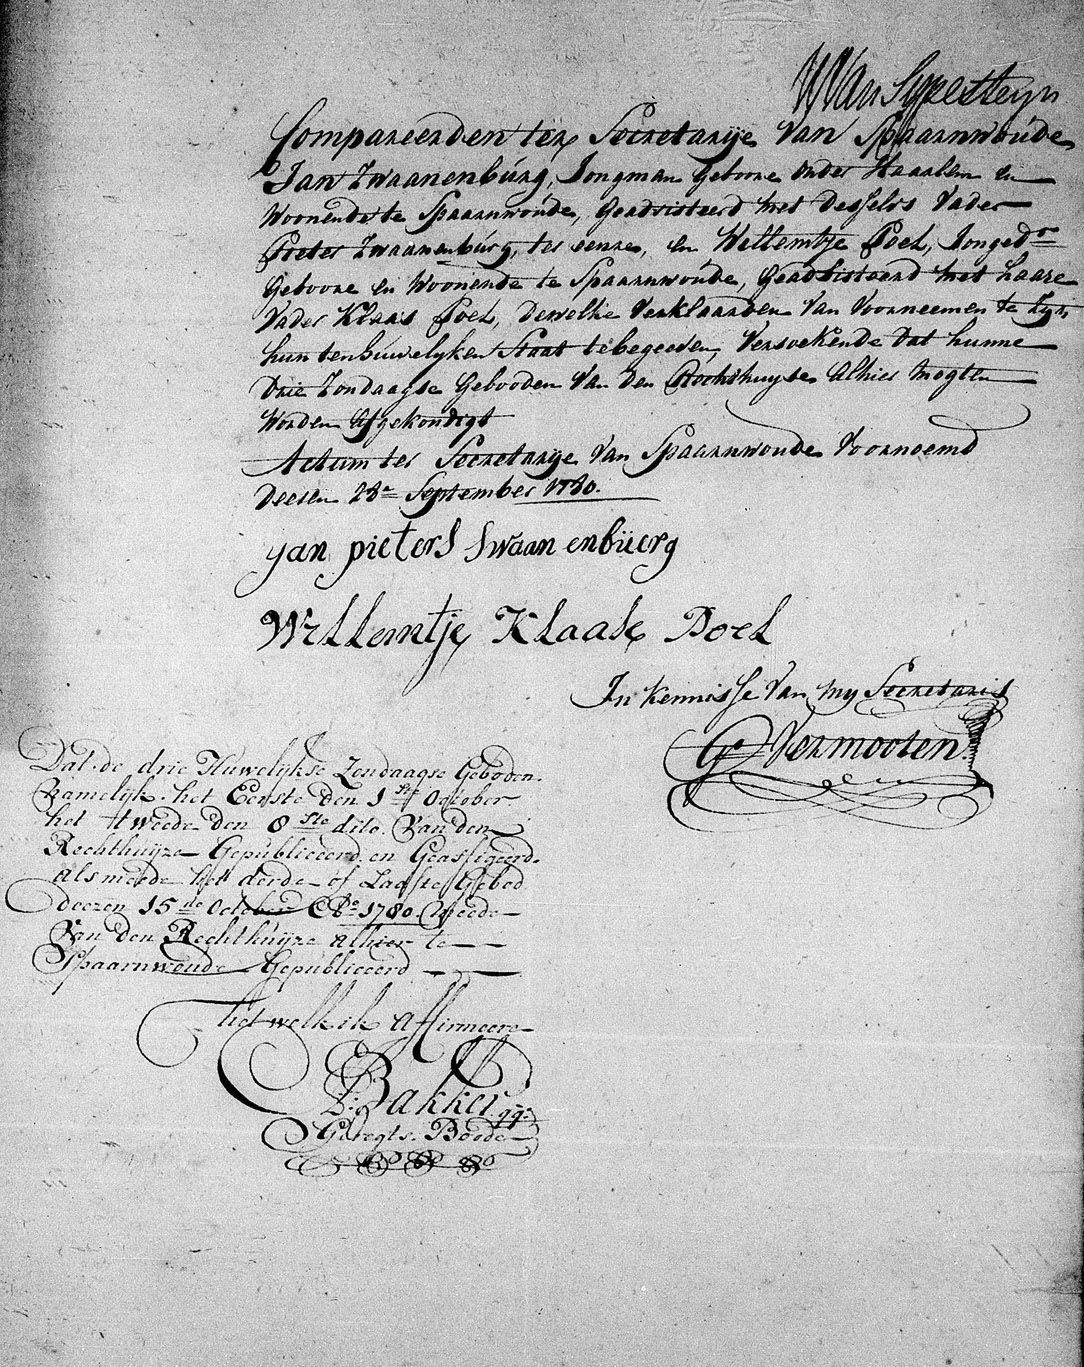 WVan Sypesteyn
Compareerden ter Secretarye van Spaarnwoúde
Jan Zwaanenbúrg, Jongman Geboore onder Haarlem en
Woonende te Spaarnwoúde, Geadsisteerd met desselfs Vader
Pieter Zwaanenbúrg, ter eenre, en Willemtje Poel, Jonged.r
Geboore en Woonende te Spaarnwoúde, Geadsisteerd met haare
Vader Klaas Poel, dewelke verklaarden van voorneemen te zyn,
hun ten húwelyken Staat te begeeven, versoekende dat hunne
drie Zondaagse Gebooden van den Rechthuyse alhier mogten
worden afgekondigt
Actum ter Secretarye van Spaarnwoude voornoemd
deesen 28.e September 1780.
yan pieters swaanenbüerg
Willemtje Klaase Poel
In kennisse van my Secretaris
G.s Vermooten
Dat de drie Huwelijkse Zondaagse Geboden.
Namelijk het Eerste den 1.ste October
het tweede den 8.ste dito. Van den
Rechthuijze Gepúbliceerd en Geaffigeerd.
als meede het derde of Laaste Gebod
deezen 15.de October A.o 1780. meede
Van den Rechthúijze alhier te
Spaarnwoude Gepúbliceerd
het welk ik affirmeere
Bakker
Geregts. Boode